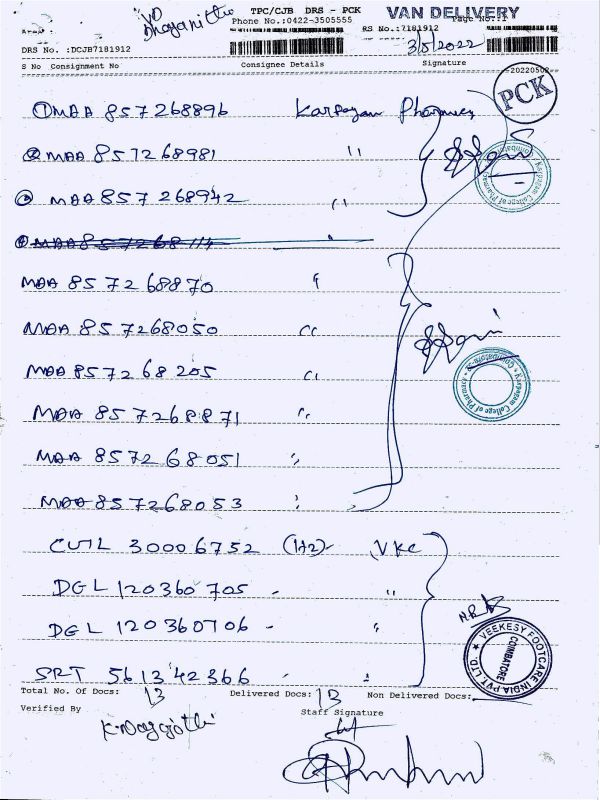 TPC/CJB DRS - PCK VAN DELIVERY
Phone No.:0422-3505555 Page No.:1
RS No.:7181912
DRS No. :DCJB7181912 3/5/2022
S No Consignment No Consignee Details Signature
20220502
PCK
① MAA 857268896 Karpagam Pharmacy
② MAA 857268981 "
③ MAA 857 268942 "
MAA 857268870 "
MAA 857268050 "
MAA 857268205 "
MAA 857268871 "
MAA 857268051 "
MAA 857268053 "
Karpagam College of Pharmacy Coimbatore
CUTL 30006752 VKC
DGL 120360705 - "
DGL 120360706 - "
SRT 561342366 - "
VEEKESY FOOTCARE INDIA PVT. LTD. COIMBATORE
Total No. Of Docs: 13 Delivered Docs: 13 Non Delivered Docs:
Verified By Staff Signature